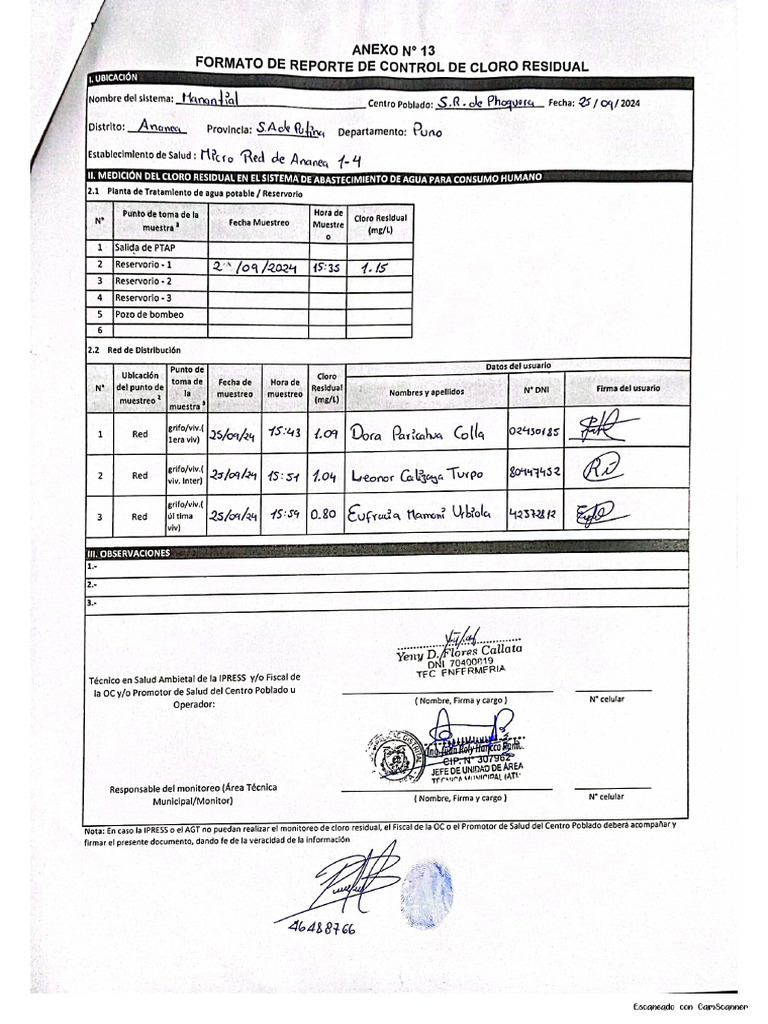 ANEXO N° 13
FORMATO DE REPORTE DE CONTROL DE CLORO RESIDUAL
I. UBICACIÓN
Nombre del sistema: Manantial Centro Poblado: S.R. de Phoquera Fecha: 25/09/2024
Distrito: Ananea Provincia: S.A de Putina Departamento: Puno
Establecimiento de Salud : Micro Red de Ananea 1-4
II. MEDICIÓN DEL CLORO RESIDUAL EN EL SISTEMA DE ABASTECIMIENTO DE AGUA PARA CONSUMO HUMANO
2.1 Planta de Tratamiento de agua potable / Reservorio
N° Punto de toma de la muestra ³ Fecha Muestreo Hora de Muestreo Cloro Residual (mg/L)
1 Salida de PTAP
2 Reservorio - 1 /09/2024 15:35 1.15
3 Reservorio - 2
4 Reservorio - 3
5 Pozo de bombeo
6
2.2 Red de Distribución
Datos del usuario
N° Ubicación del punto de muestreo ² Punto de toma de la muestra ³ Fecha de muestreo Hora de muestreo Cloro Residual (mg/L) Nombres y apellidos N° DNI Firma del usuario
1 Red grifo/viv.( 1era viv) 25/09/24 15:43 1.09 Dora Paricahua Colla 02430185
2 Red grifo/viv.( viv. Inter) 25/09/24 15:51 1.04 Leonor Calizaya Turpo 80447452
3 Red grifo/viv.( úl tima viv) 25/09/24 15:59 0.80 Eufracia Mamani Urbiola 42372812
III. OBSERVACIONES
1.-
2.-
3.-
Yeny D. Flores Callata
DNI 70400819
TEC ENFERMERIA
Técnico en Salud Ambietal de la IPRESS y/o Fiscal de
la OC y/o Promotor de Salud del Centro Poblado u
Operador:
( Nombre, Firma y cargo ) N° celular
Ing. Juan Roly Hancco
CIP. N° 307962
JEFE DE UNIDAD DE ÁREA
TÉCNICA MUNICIPAL (ATM
Responsable del monitoreo (Área Técnica
Municipal/Monitor)
( Nombre, Firma y cargo ) N° celular
Nota: En caso la IPRESS o el AGT no puedan realizar el monitoreo de cloro residual, el Fiscal de la OC o el Promotor de Salud del Centro Poblado deberá acompañar y
firmar el presente documento, dando fe de la veracidad de la información
46488766
Escaneado con CamScanner